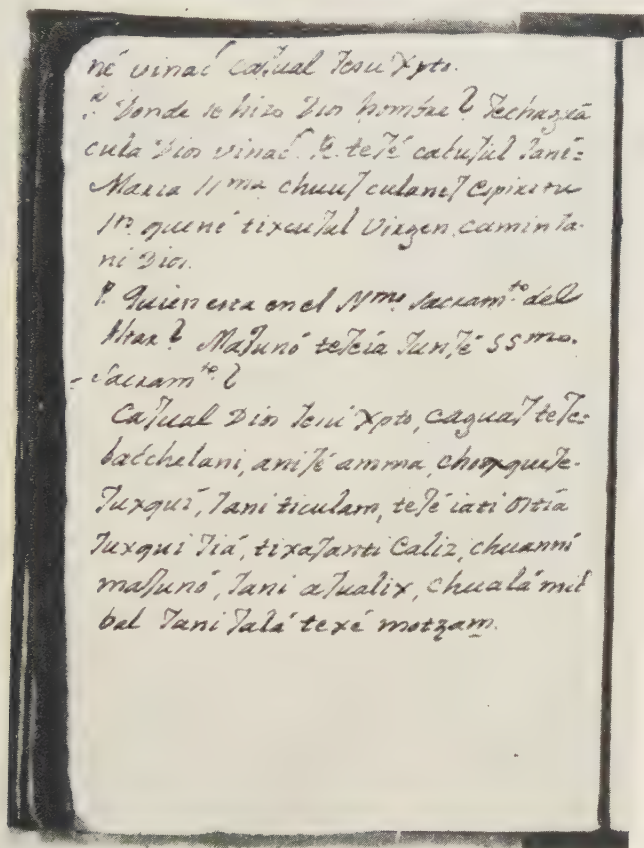 né vinac̓ caʃual Jesu Xpto.
P. Donde se hizo Dios hombre? Jechazea
cula Dios vinac̓. R. teʃé catuʃul Jani=
Maria SSma. chuuʃ culaneʃ Espiritu
Sto. quené tixcuʃal Virgen, camin Ja-
ni Dios.
P. Quien esta en el SSmo. Sacramto. del
Altar? Maʃunó teʃcía Junʃé SSmo.
Sacramto.?
Caʃual Dios Jesu Xpto, caguaʃ teʃe=
bac̓chelani, aniʃé amma, chopqueʃe-
Juxquí, Jani ticulam, teʃé iati Ostía
Juxqui Jiá, tixaʃanti Caliz, chuanní
maʃunó, Jani aʃualix, chualá mil
bal Jani Jalá texé motzam.